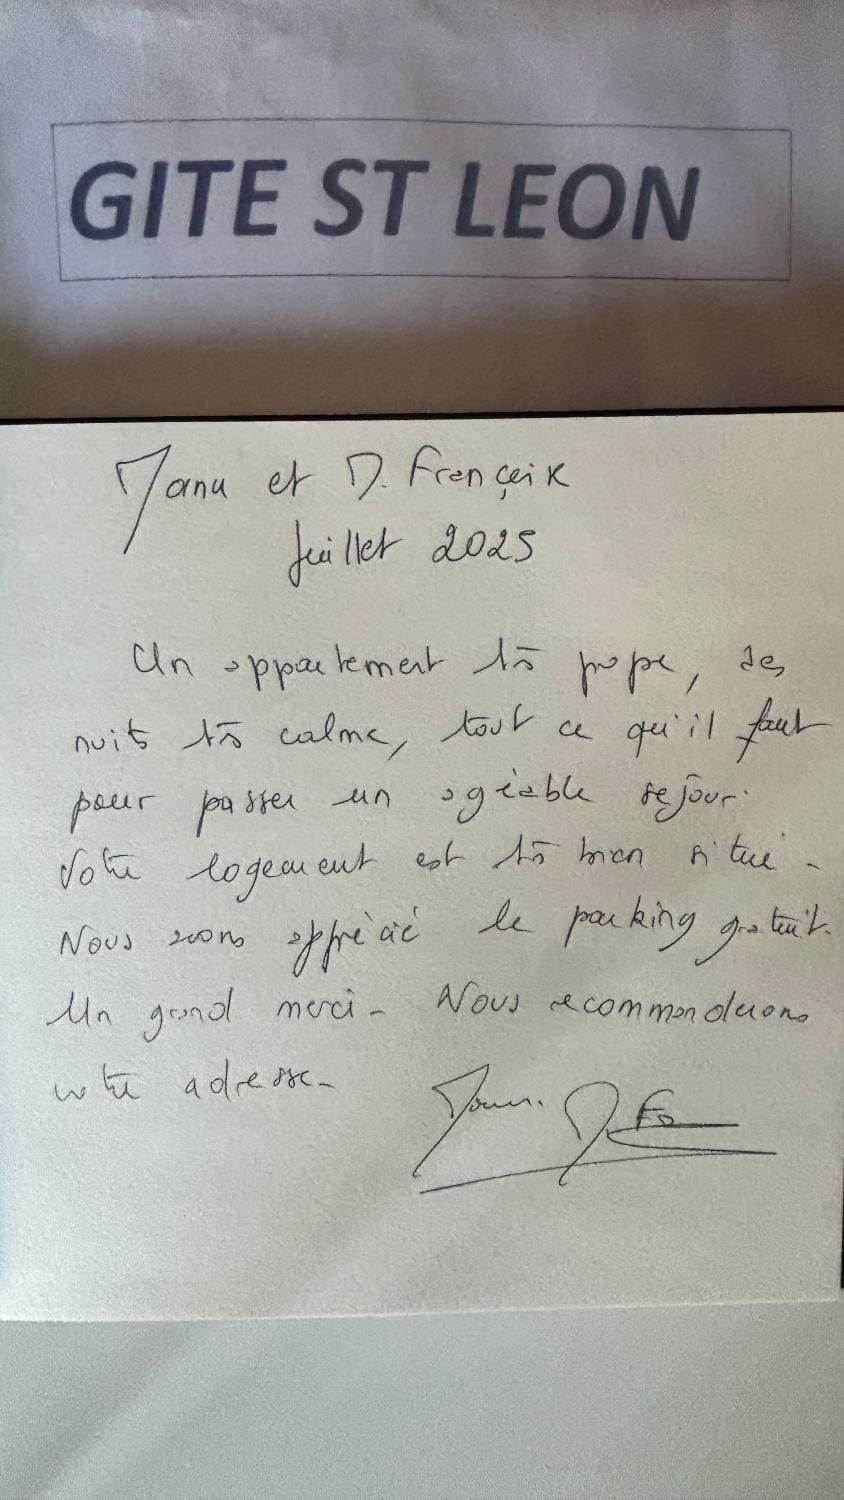 GITE ST LEON
Manu et M. Françoik
Juillet 2025
Un appartement très propre, des
nuits très calme, tout ce qu'il faut
pour passer un agréable séjour.
Votre logement est très bien situé.
Nous avons apprécié le parking gratuit.
Un grand merci. Nous recommanderons
votre adresse.